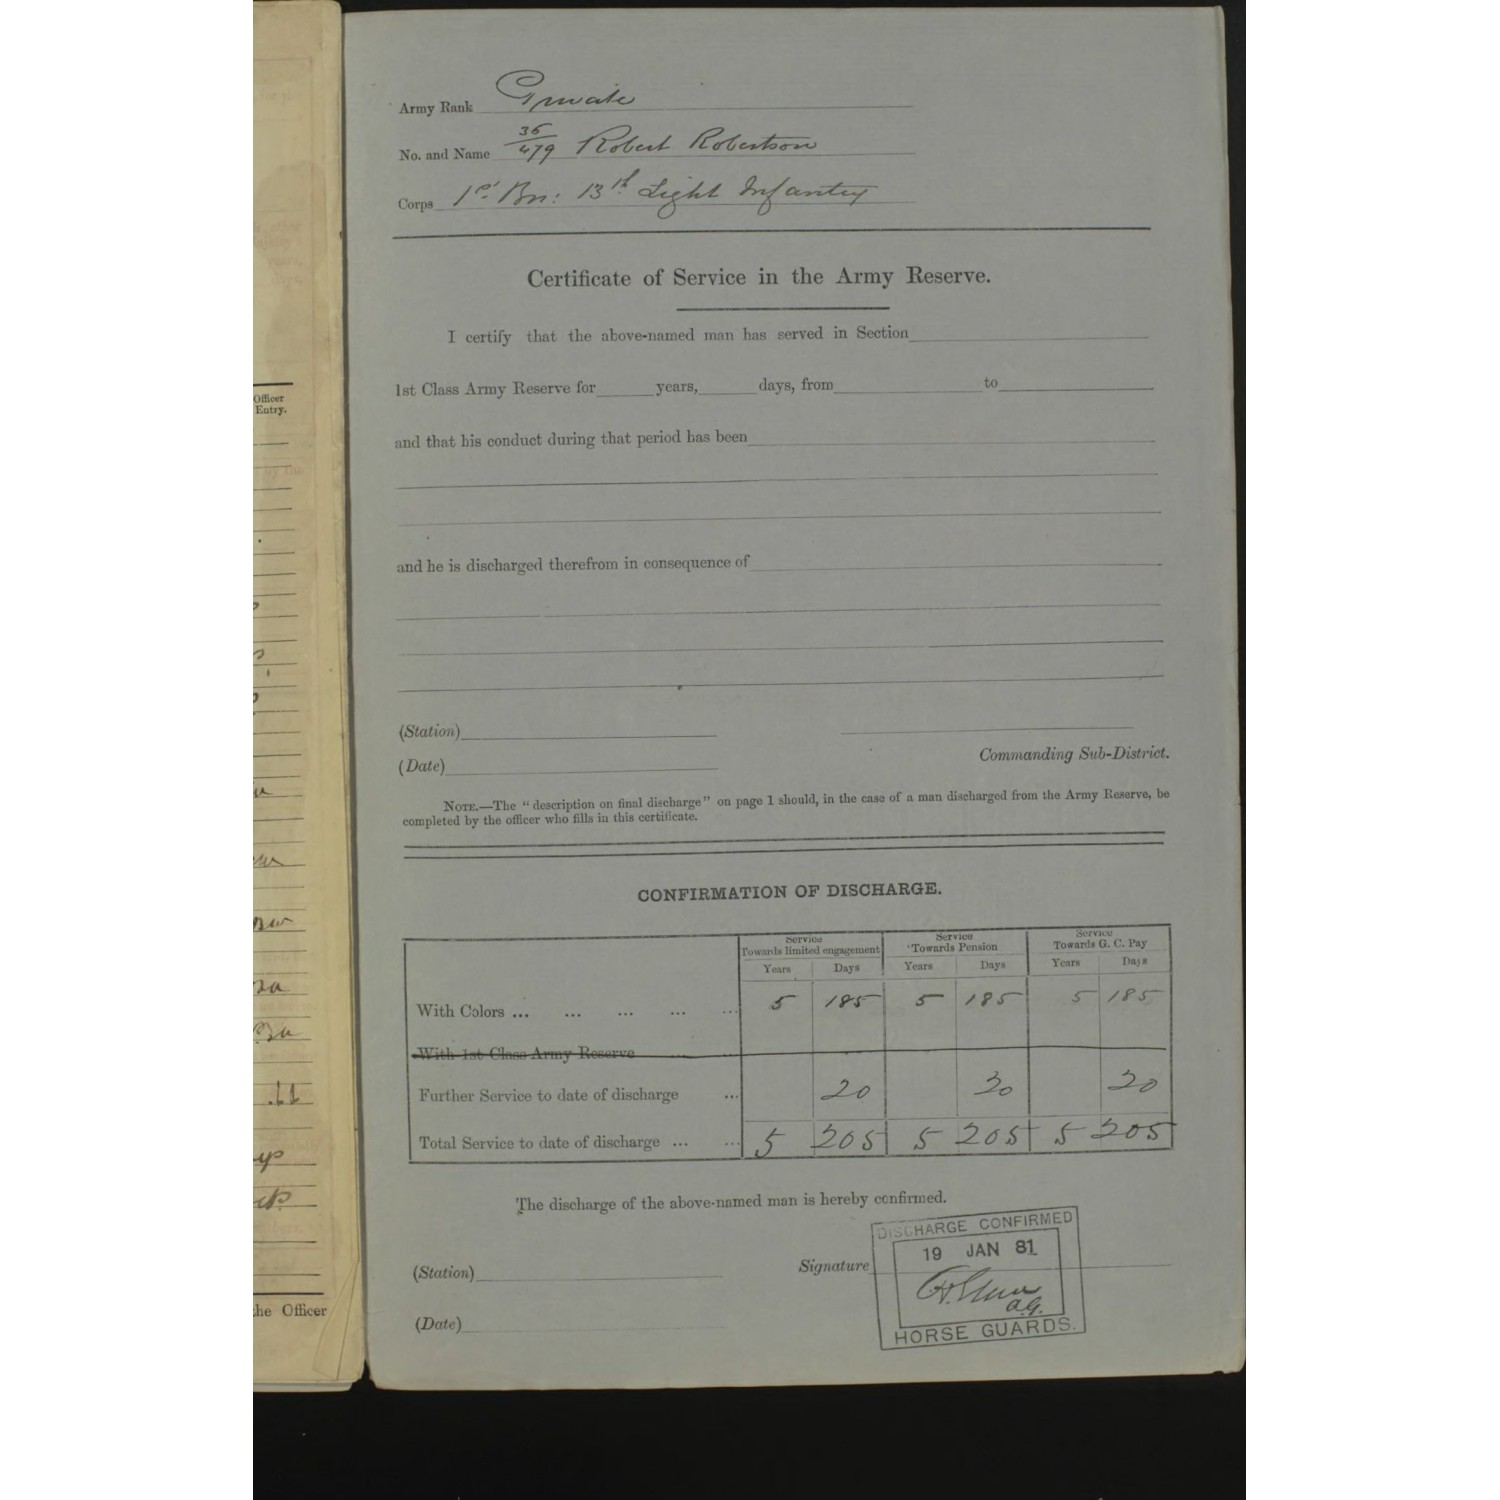 Army Rank Private
No. and Name 36/479 Robert Robertson
Corps 1st Bn: 13th Light Infantry
Certificate of Service in the Army Reserve.
I certify that the above-named man has served in Section
1st Class Army Reserve for years, days, from to
and that his conduct during that period has been
and he is discharged therefrom in consequence of
(Station)
Commanding Sub-District.
(Date)
NOTE.—The "description on final discharge" on page 1 should, in the case of a man discharged from the Army Reserve, be
completed by the officer who fills in this certificate.
CONFIRMATION OF DISCHARGE.
Service Service Service
Towards limited engagement Towards Pension Towards G. C. Pay
Years Days Years Days Years Days
With Colors ... ... ... ... ... 5 185 5 185 5 185
With 1st Class Army Reserve
Further Service to date of discharge ... 20 20 20
Total Service to date of discharge ... ... 5 205 5 205 5 205
The discharge of the above-named man is hereby confirmed.
DISCHARGE CONFIRMED
19 JAN 81
(Station) Signature
A.G.
HORSE GUARDS.
(Date)
Officer
Entry.
the Officer